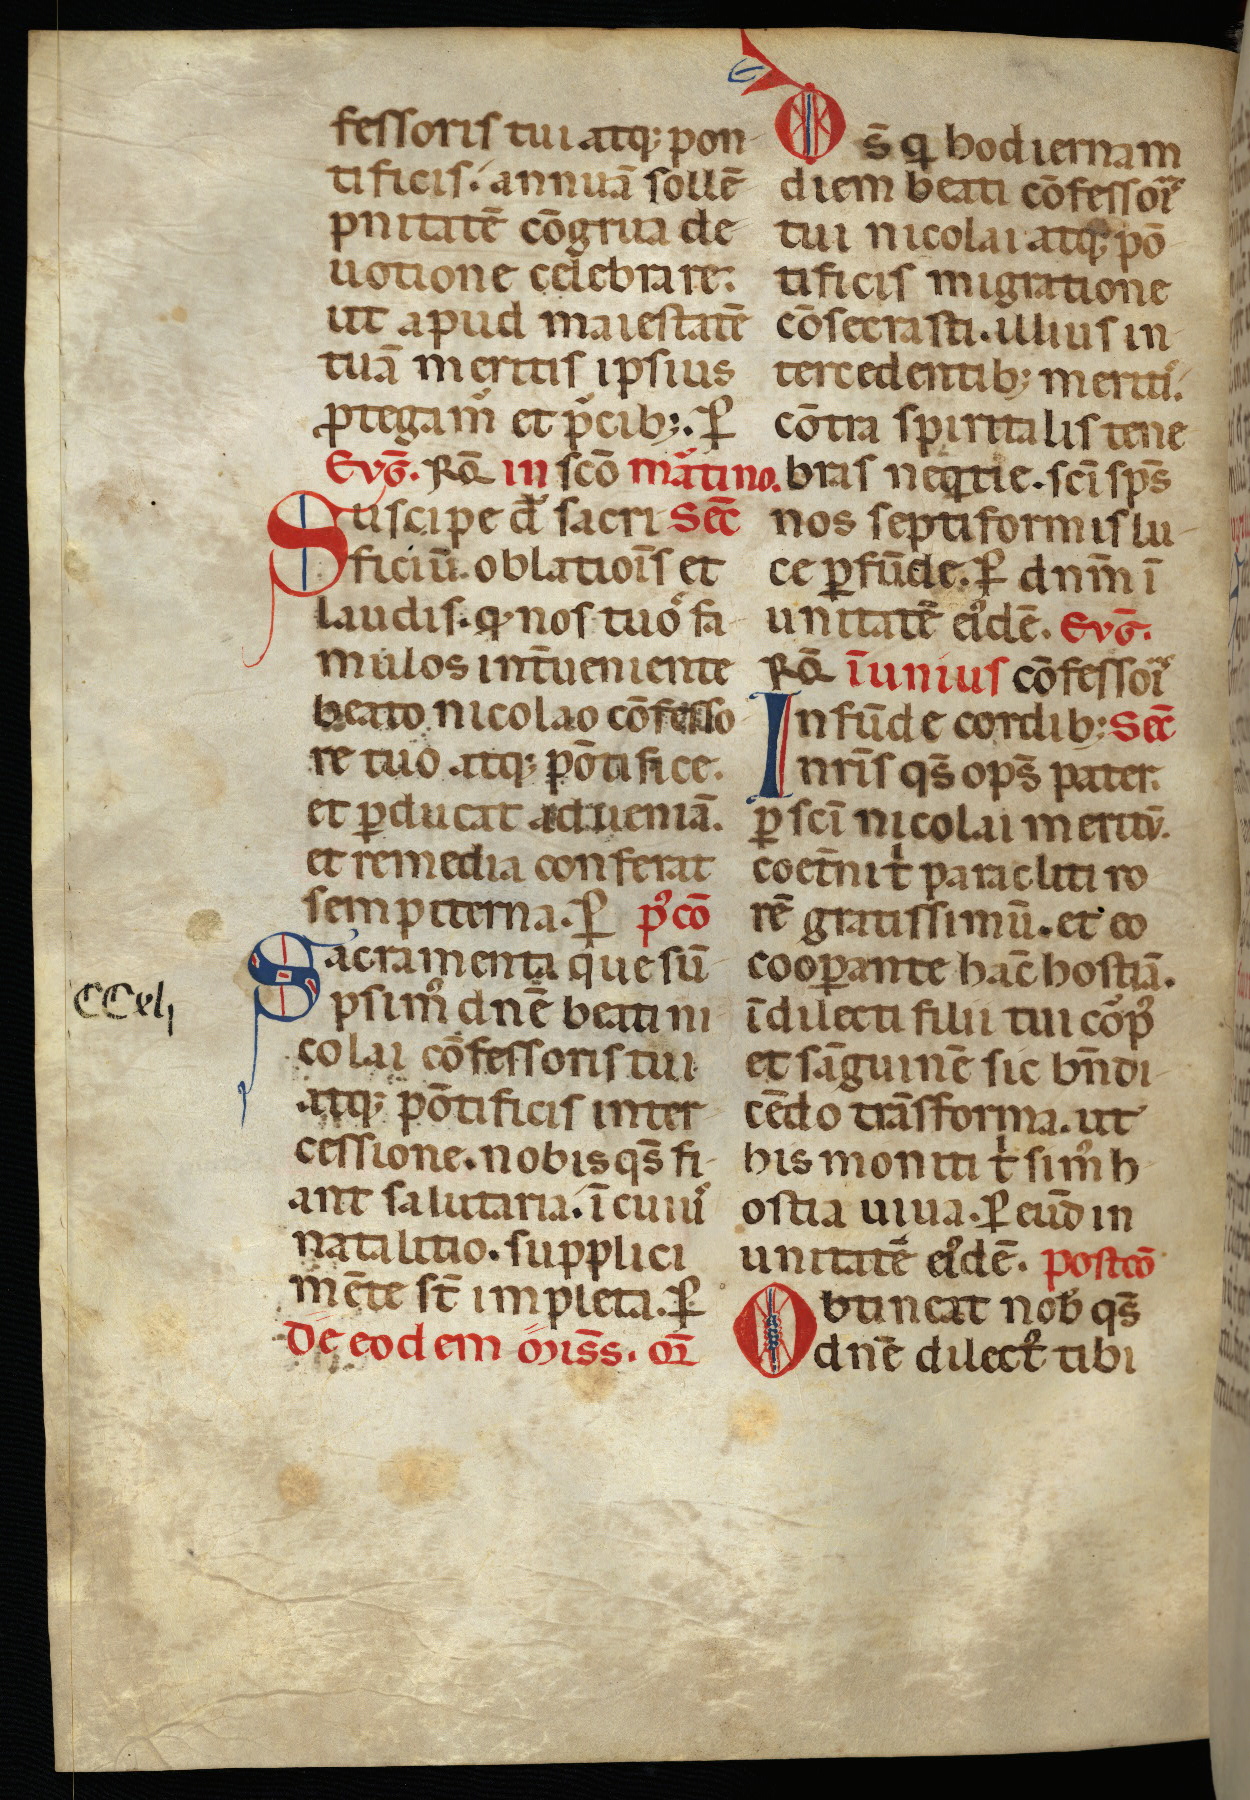 fessoris tui atq; pon
tificis. annuā sollē
pnitatē cōgrua de
uotione celebrare.
ut apud maiestatē
tuā meritis ipsius
ꝓtegam᷒ et p̄cib;. P̲
Evḡ. Rō in scō mātino.
Suscipe d̄ sacri Sec̄
ficiū. oblatiōis et
laudis. q nos tuos fa
mulos int̄ueniente
beato nicolao cōfesso
re tuo atq; pōtifice.
et ꝑducat ad ueniā.
et remedia conferat
sempiterna. P̲ p᷒cō
Sacramenta que sū
psim᷒ dn̄e beati ni
CCxlj
colai cōfessoris tui
atq; pōtificis inter
cessione. nobis qs̄ fi
ant salutaria. ī cui᷒
natalitio. supplici
mēte st̄ impleta. P̲
De eodem miss̄. or̄
Ds̄ q hodiernam
diem beati cōfessor̄
tui nicolai atq; pō
tificis migratione
cōsecrasti. illius in
tercedentib; meriti.
cōtra spiritalis tene
bras neqtie. sc̄i sp̄s
nos septiformis lu
ce ꝑfūde. P̲ dn̄m ī
unitatē ei᷒dē. Evḡ.
Rō ī unius cōfessor̄
Infūde cordib; Sec̄
nr̄is qs̄ op̄s pater.
ꝑ sc̄i nicolai meritū.
coet̄nit̄ paracliti ro
rē gratissimū. et eo
cooꝑante hāc hostiā.
ī dilecti filii tui cōp᷒
et sāguinē sic bn̄di
cēdo trāsforma. ut
his moniti t̄ sim᷒ h
ostia uiua. P̲ eūd in
unitatē ei᷒dē. postcō
Obtineat nob̄ qs̄
dn̄e dilect᷒ tibi